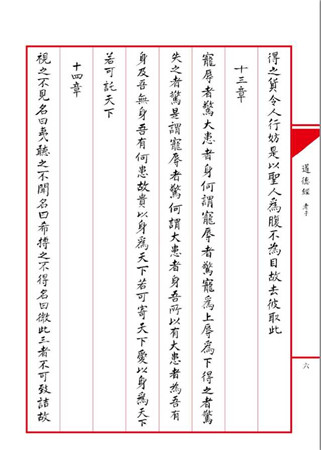 道德經 老子
六
得之貨令人行妨是以聖人爲腹不為目故去彼取此
十三章
寵辱者驚大患者身何謂寵辱者驚寵爲上辱爲下得之者驚
失之者驚是謂寵辱者驚何謂大患者身吾所以有大患者為吾有
身及吾無身吾有何患故貴以身爲天下若可寄天下愛以身爲天下
若可託天下
十四章
視之不見名曰夷聽之不聞名曰希搏之不得名曰微此三者不可致詰故